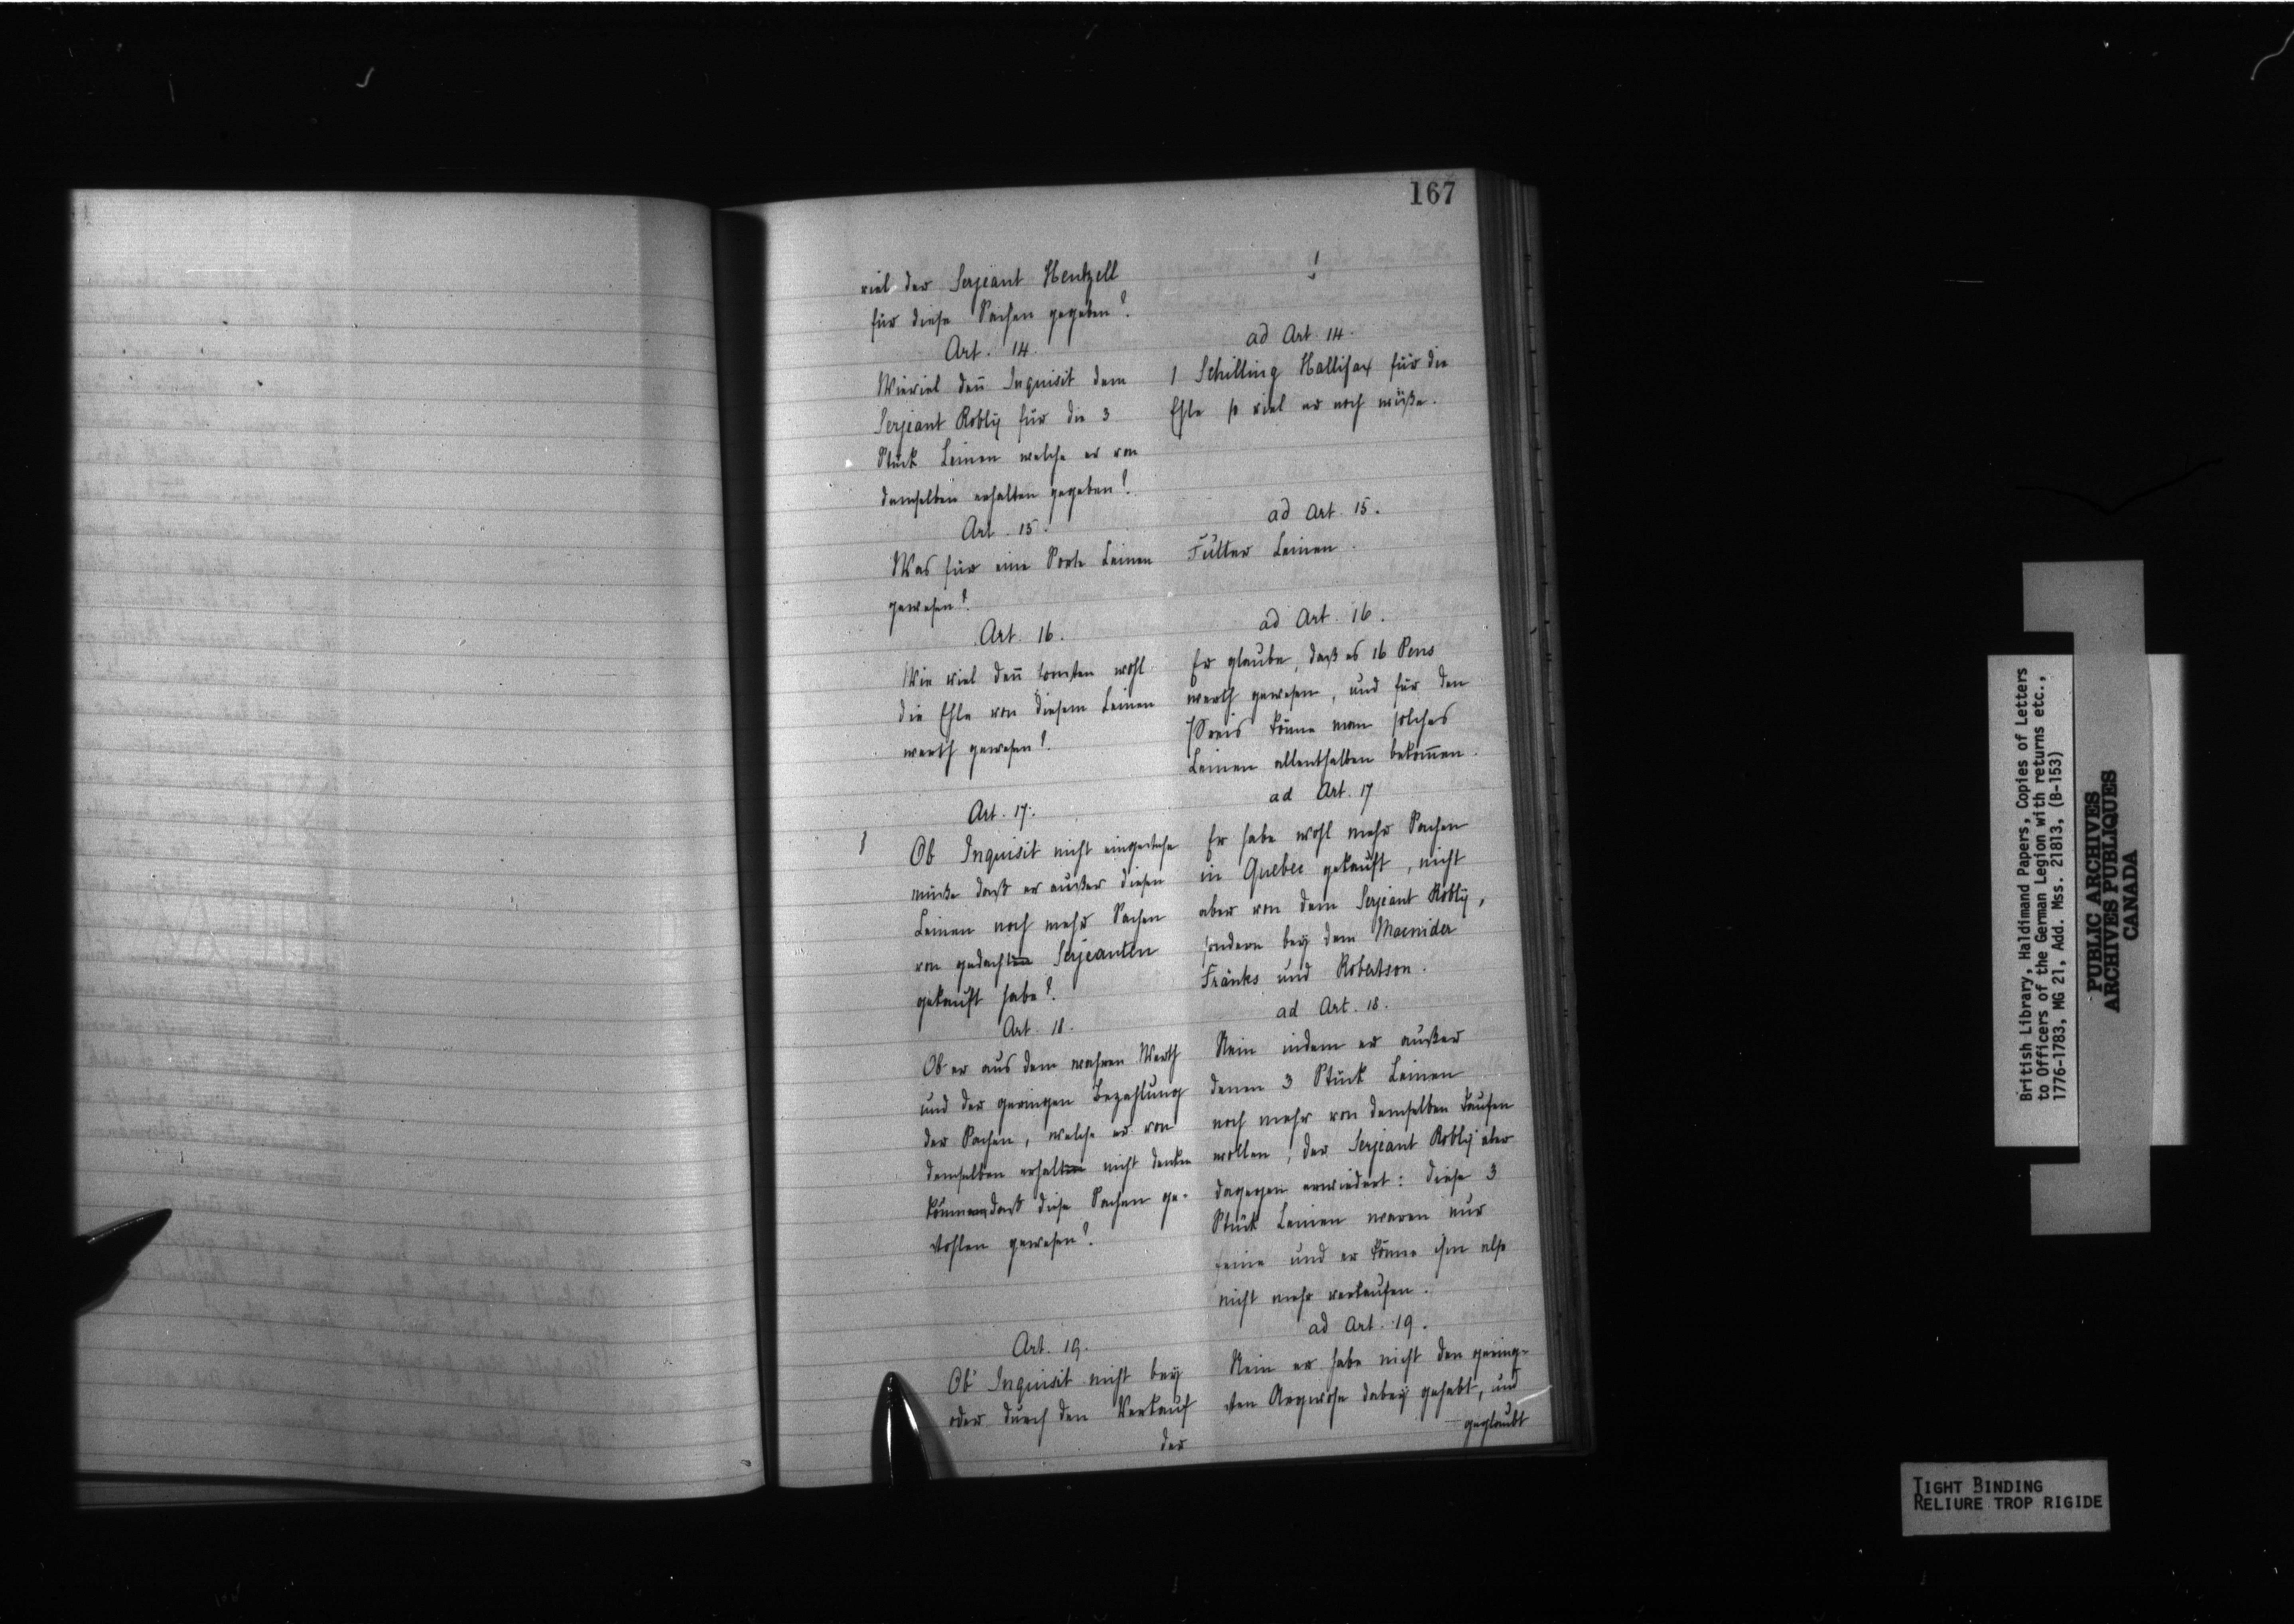 167
viel der Serjeant Hentzell
für diese Sachen gegeben?
Art. 14.
Wieviel deñ Inquisit dem
Serjeant Robly für die 3
Stück Leinen welche er von
demselben erhalten gegeben?
Art. 15.
Was für eine Sorte Leinen
gewesen?
Art. 16.
Wie viel deñ wohl
die Ehle von diesem Leinen
werth gewesen?
Art. 17.
Ob Inquisit nicht eingestehe
müße daß er außer diesen
Leinen noch mehr Sachen
von gedachten Serjeanten
gekauft habe?
Art. 18.
Ob er aus dem wahren Werth
und der geringen Bezahlung
der Sachen, welche er von
demselben erhalten nicht denken
können daß diese Sachen ge-
stohlen gewesen?
Art. 19.
Ob Inquisit nicht bey
oder durch den Verkauf
der
ad Art. 14.
1 Schilling Hallifax für die
Ehle so viel er noch wüße.
ad Art. 15.
Futter Leinen.
ad Art. 16.
Er glaube, daß es 16 Pens
werth gewesen, und für den
Preis könne man solches
Leinen allenthalben bekom̃en.
ad Art. 17
Er habe wohl mehr Sachen
in Quebec gekauft, nicht
aber von dem Serjeant Robly,
sondern bey dem Macnider
Fränks und Robertson.
ad Art. 18.
Nein indem er außer
denen 3 Stück Leinen
noch mehr von demselben kaufen
wollen, der Serjeant Robly aber
dagegen erwiedert: diese 3
Stück Leinen waren nur
seine und er könne ihm also
nicht mehr verkaufen.
ad Art. 19.
Nein er habe nicht den gering-
sten Argwohn dabey gehabt, und
geglaubt
British Library, Haldimand Papers, Copies of Letters
to Officers of the German Legion with returns etc.,
1776-1783, MG 21, Add. Mss. 21813, (B-153)
PUBLIC ARCHIVES
ARCHIVES PUBLIQUES
CANADA
TIGHT BINDING
RELIURE TROP RIGIDE